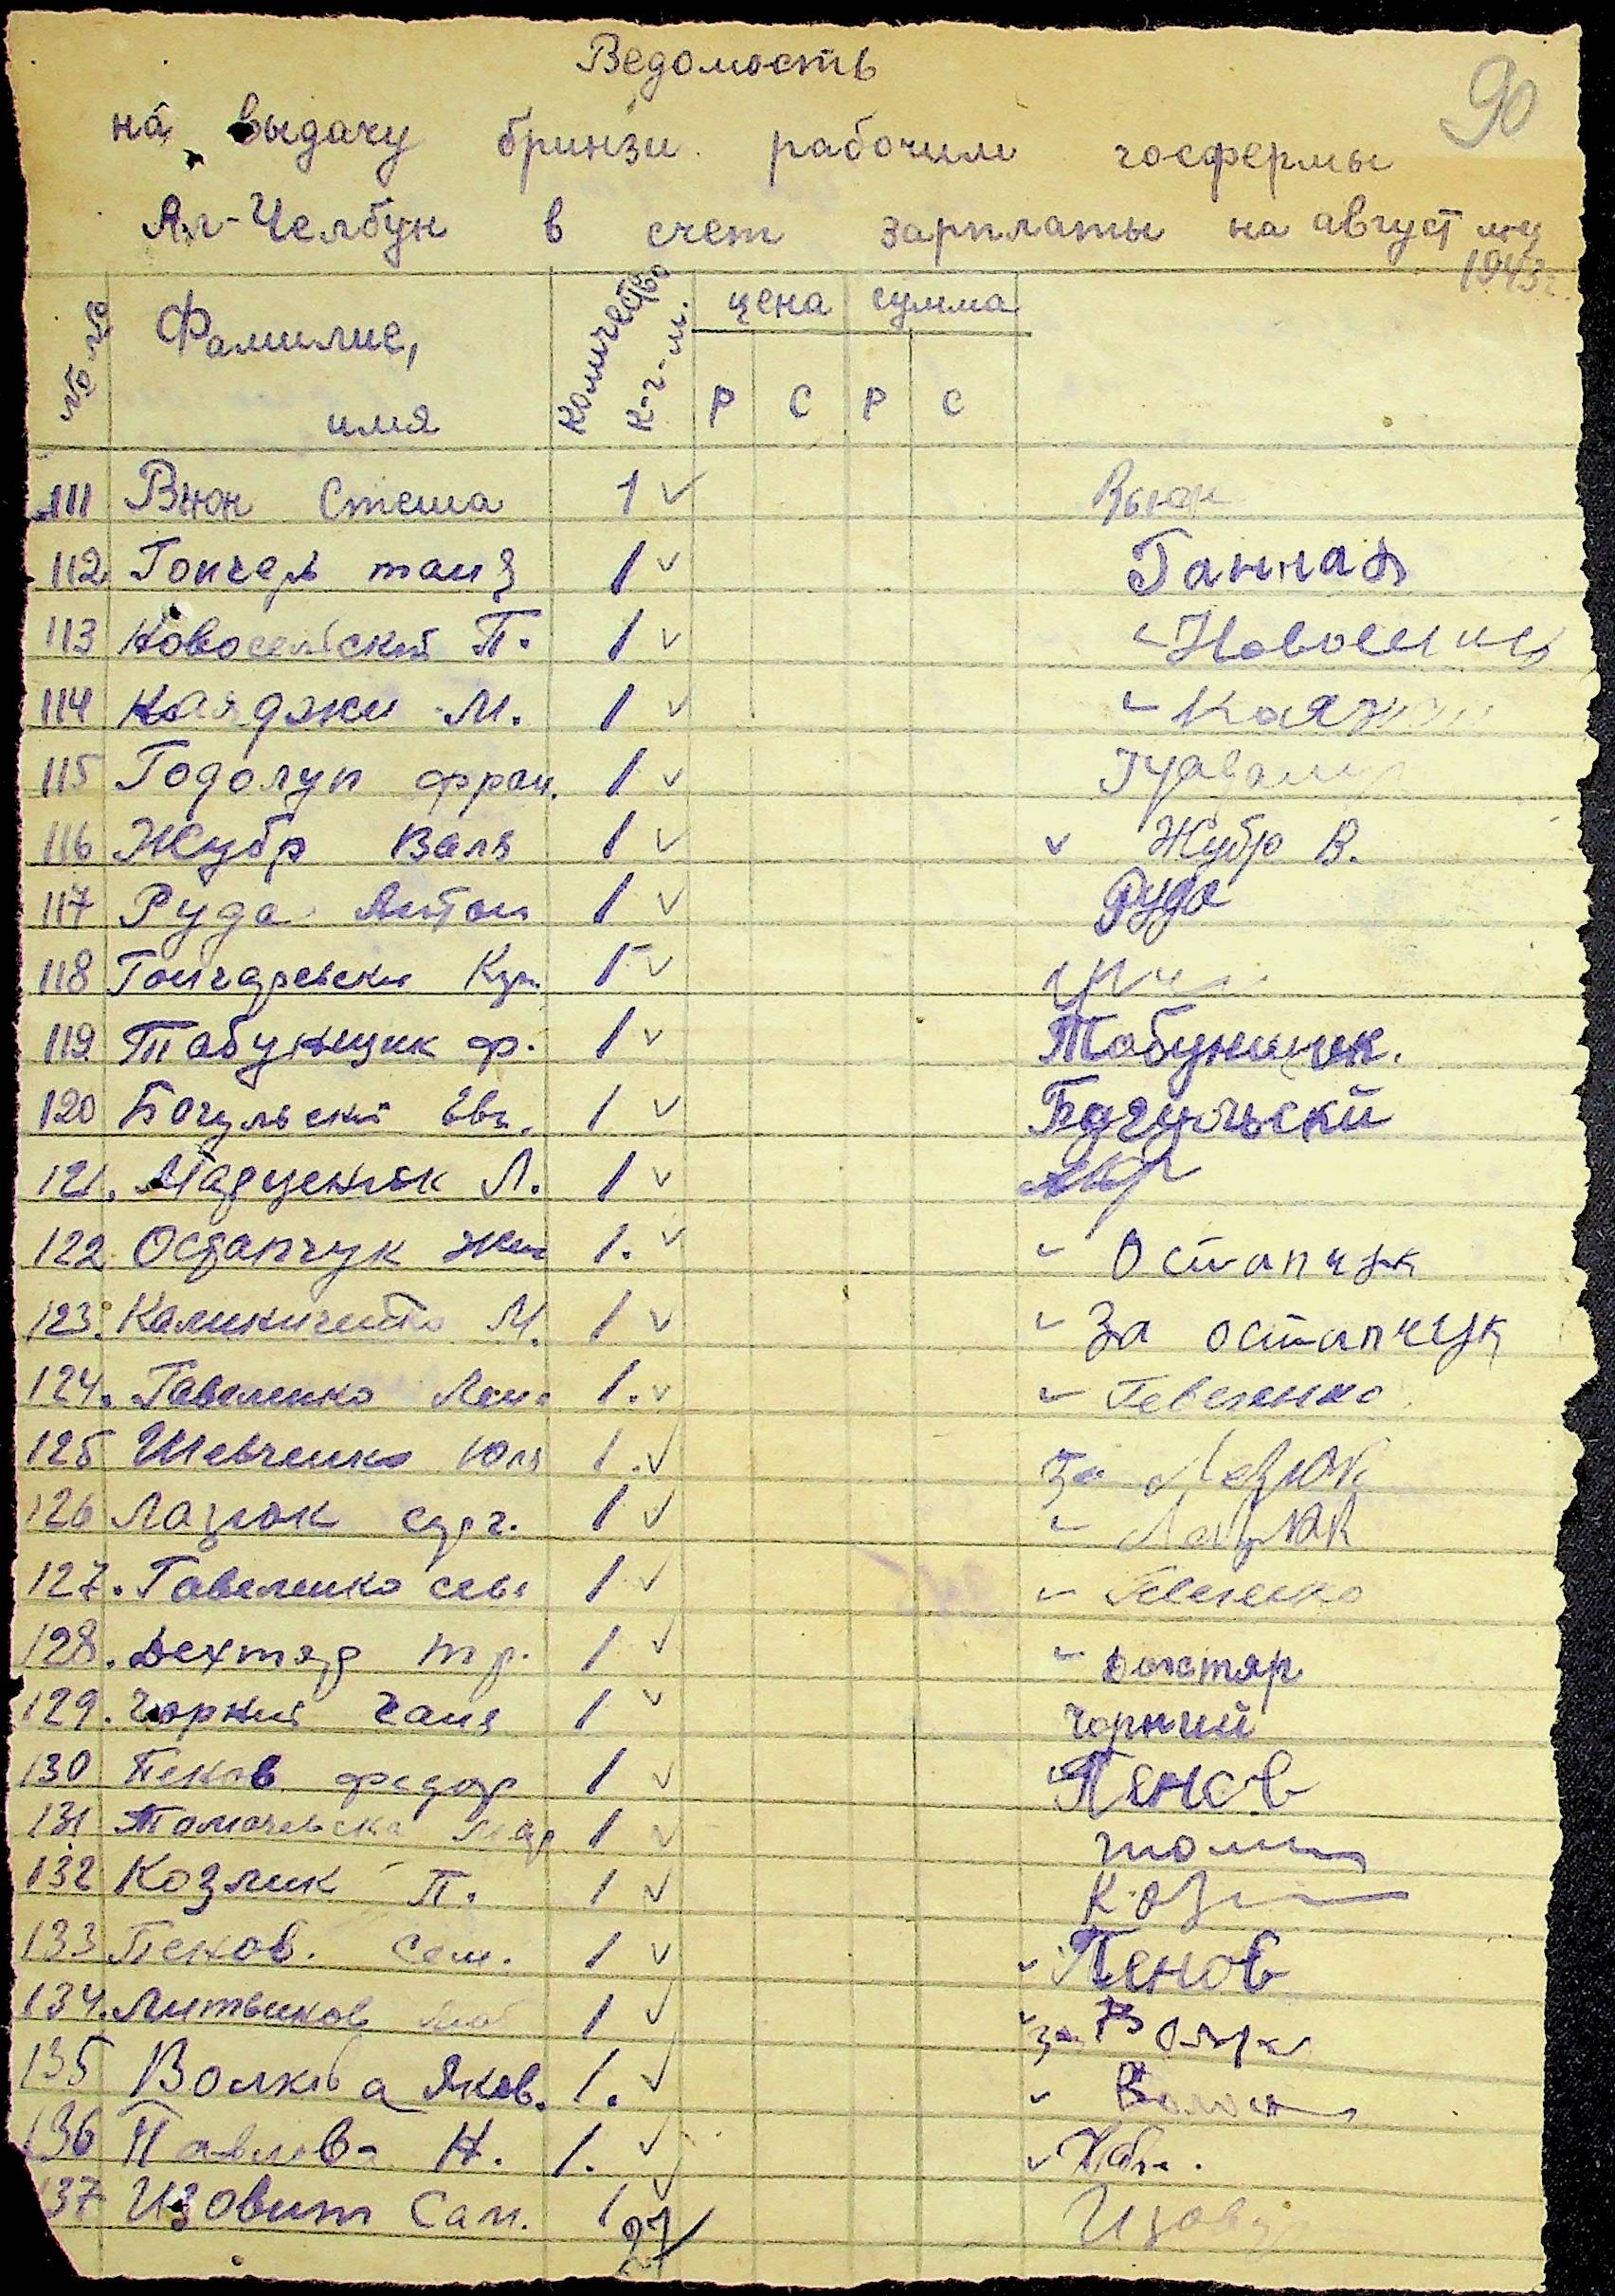 90
Ведомость
на выдачу бринзи рабочим госфермы
Ял-Челбун в счет зарплаты на август м-ц
1943г.
№ №
Фамилие, имя
Количество к-г-м.
цена
сумма
Р С Р С
111 Вюн Стеша 1 ✓ Вьюн
112 Гончаръ таня 1 ✓
113 Новосельский П. 1 ✓
114 Каяджи М. 1 ✓
115 Годолуп фран. 1 ✓
116 Жубр Валя 1 ✓ ✓ Жубр В.
117 Руда Антон 1 ✓ Руда
118 Гончаревски 1 ✓
119 Табунщик ф. 1 ✓ Табунщик.
120 Бачульский Евг. 1 ✓ Бачульский
121. Марценюк Л. 1 ✓
122 Остапчук Жен 1. ✓ Остапчук
123. Калиниченко М. 1 ✓ За остапчук
124. Гавеленко Лен. 1. ✓ Гевеленко
125 Шевченко Юля 1. ✓ За Лазюк
126 Лазюк серг. 1 ✓ Лазюк
127. Гавеленко сев. 1 ✓ Гевеленко
128. Дехтяр тр. 1 ✓ Дохтяр
129. Чорний Ганя 1 ✓ Чорний
130 Пенов федор 1 ✓ Пенов
131 Томачевска Мар 1 ✓ Том
132 Козлик П. 1 ✓ Коз
133 Пенов. Сем. 1 ✓ Пенов
134. Литвинов 1 ✓ за
135 Волкова Яков. 1. ✓
136 Павлова Н. 1. ✓
137 Изовит Сам. 1 ✓
27